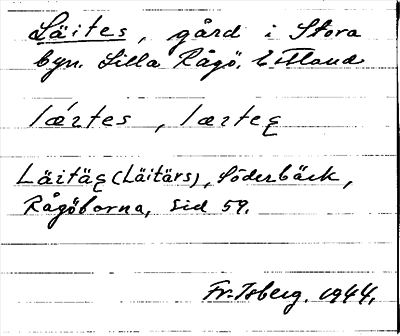 Läites, gård i Stora
byn. Lilla Rågö. Estland
Läitäs (Läitärs), Söderbäck,
Rågöborna, sid 59.
Fr. Isberg. 1944.